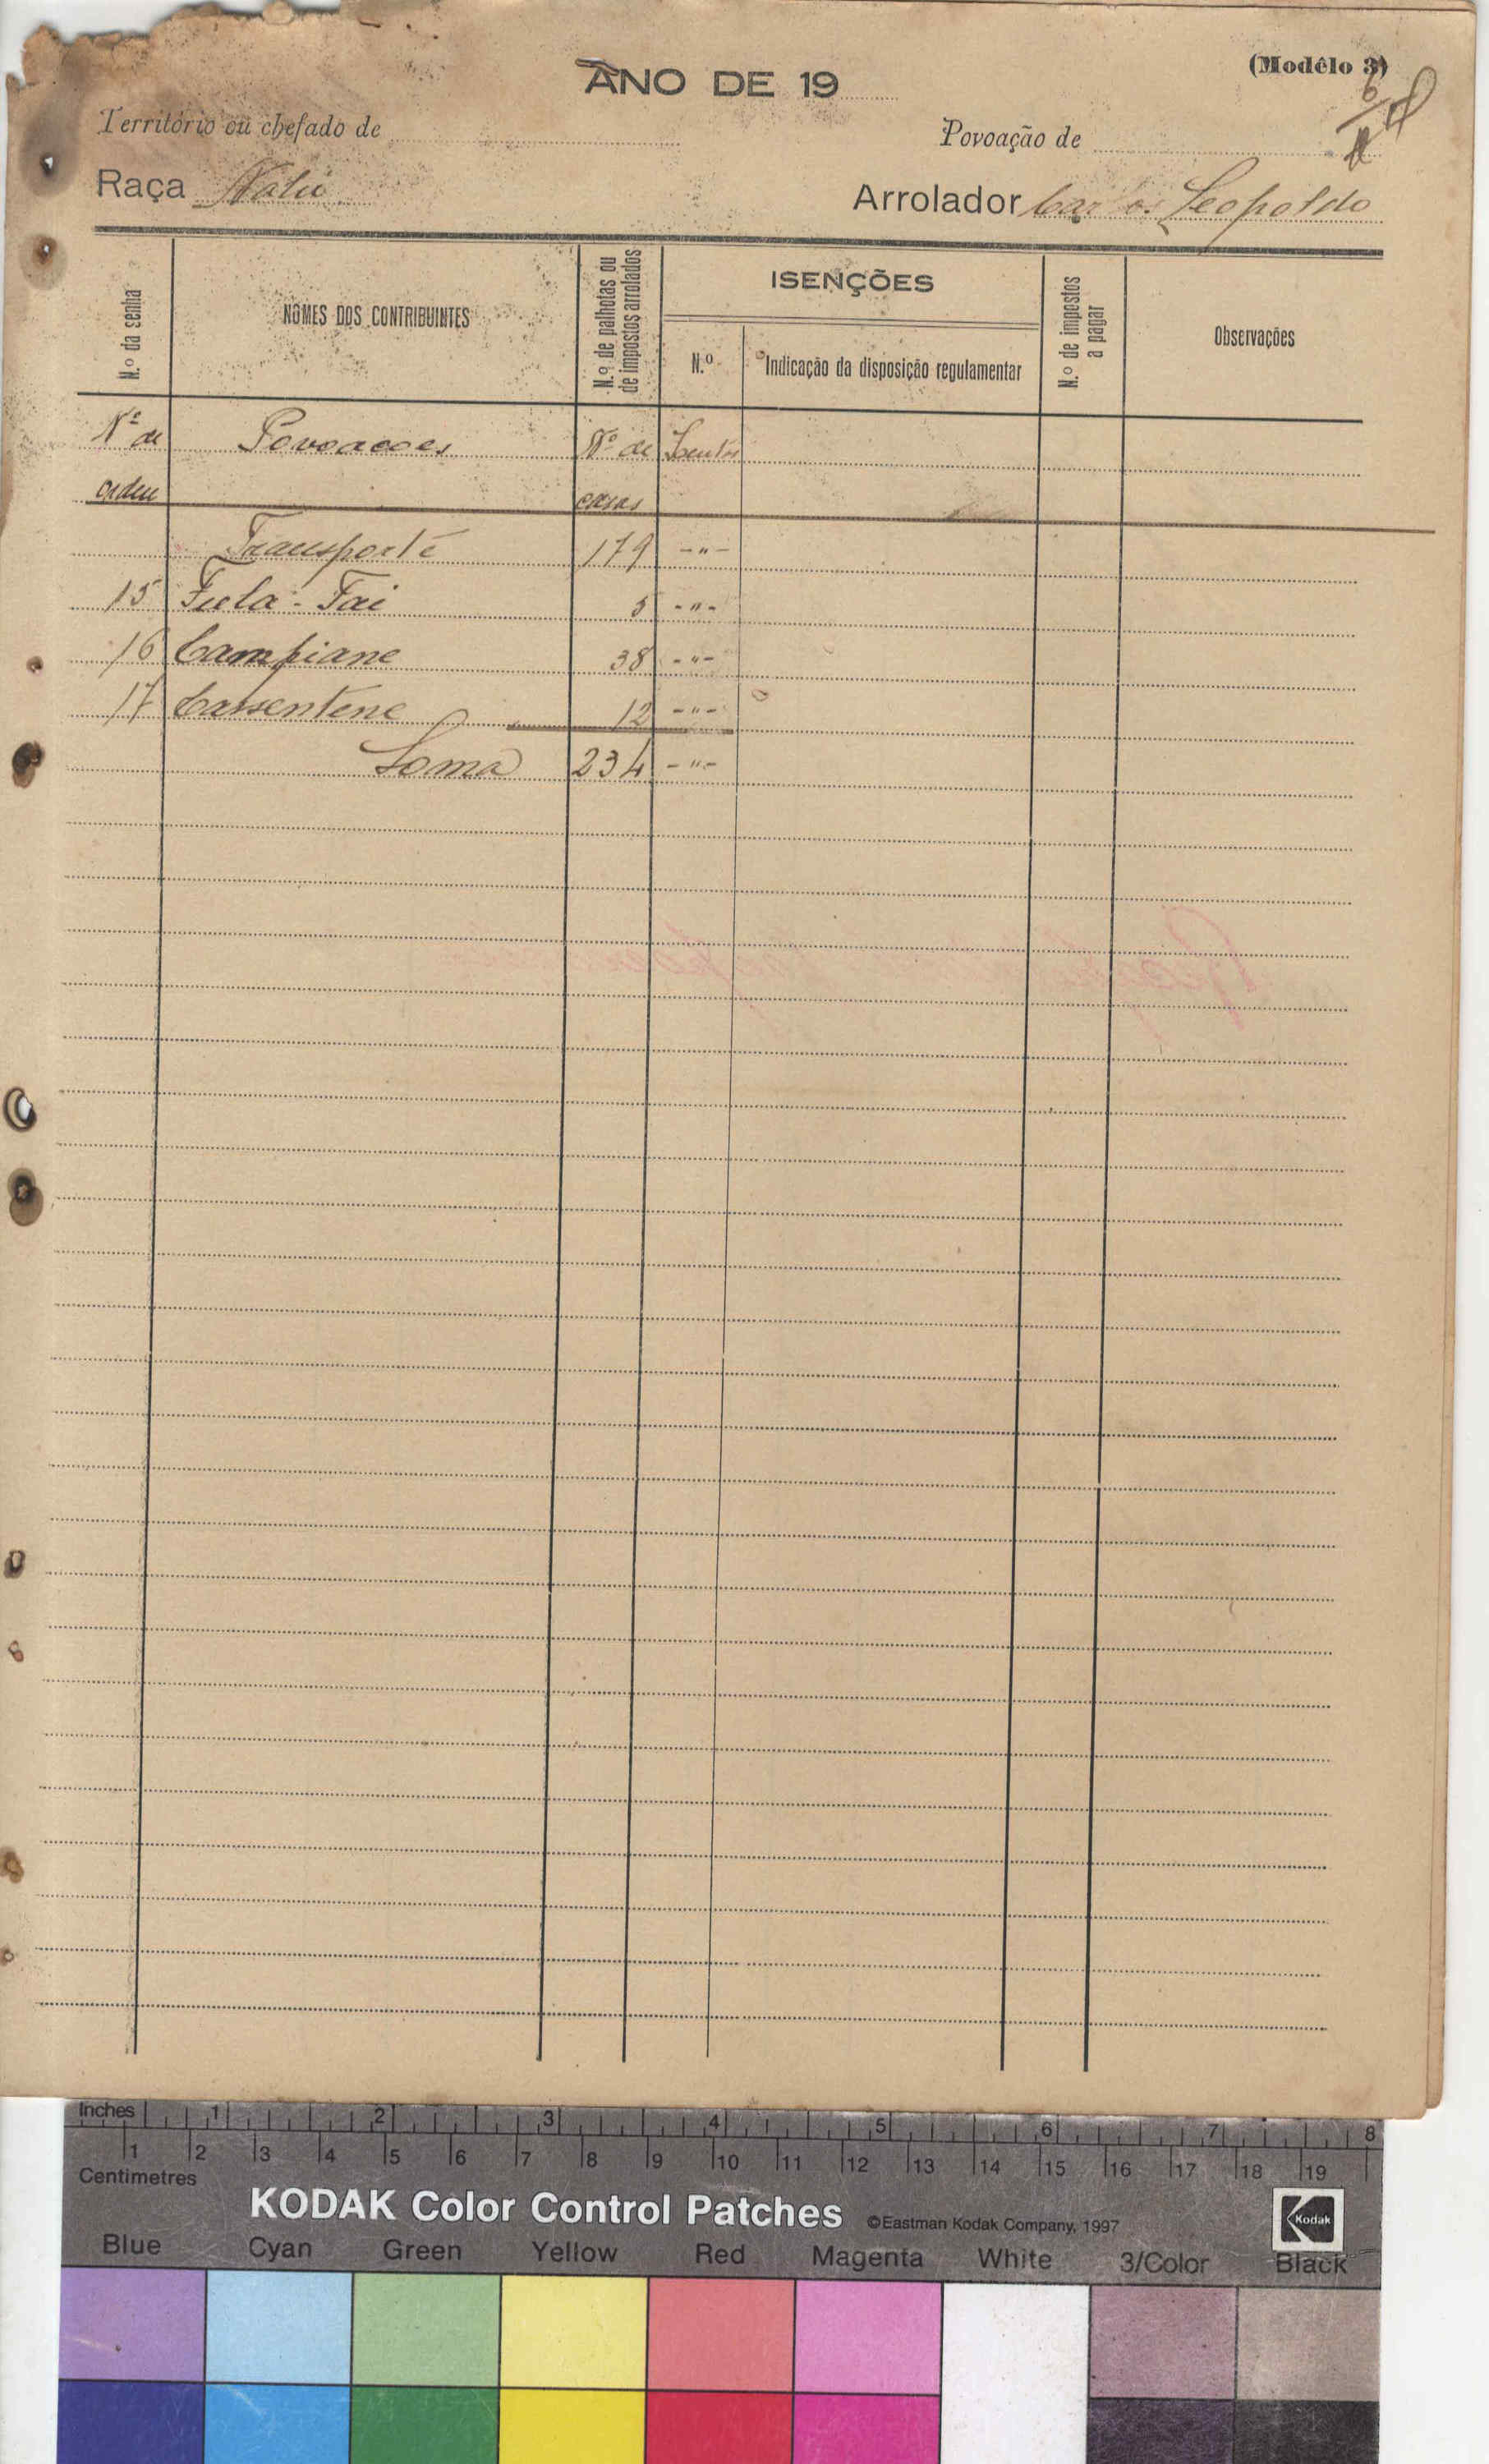 (Modêlo 3)
ANO DE 19
6
Território ou chefado de
Povoação de
Raça Nalú
Arrolador Carlos Leopoldo
N.º da senha
NOMES DOS CONTRIBUINTES
N.º de palhotas ou de impostos arrolados
ISENÇÕES
N.º
Indicação da disposição regulamentar
N.º de impostos a pagar
Observações
Nº de Povoacoes Nº de
ordem casas
Transporte 179 -"-
15 Fula-Tai 5 -"-
16 Campiane 38 -"-
17 Cassentene 12 -"-
Soma 234 -"-
Inches 1 2 3 4 5 6 7 8
1 2 3 4 5 6 7 8 9 10 11 12 13 14 15 16 17 18 19
Centimetres
KODAK Color Control Patches ©Eastman Kodak Company, 1997 Kodak
Blue Cyan Green Yellow Red Magenta White 3/Color Black